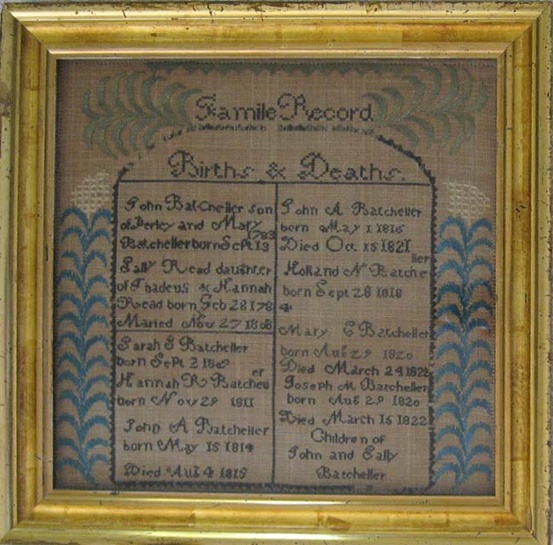 Famile Record
Births & Deaths.
John Batcheller son
of Perley and Mary
1783
Batcheller born Sept 13
Sally Read daughter
of Thadeus & Hannah
Read born Feb 28 178
4
Maried Nov 27 1808
Sarah E Batcheller
born Sept 2
er
Hannah R Batchell
born Nov 29 1811
John A Batcheller
born May 15 1814
Died Aug 4 1815
John A Batcheller
born May 1 1816
Died Oct 15 1821
ller
Holland N Batche
born Sept 28 1818
Mary E Batcheller
born Aug 29 1820
Died March 24 1822
Joseph M Batcheller
born Aug 29 1820
Died March 15 1822
Children of
John and Sally
Batcheller